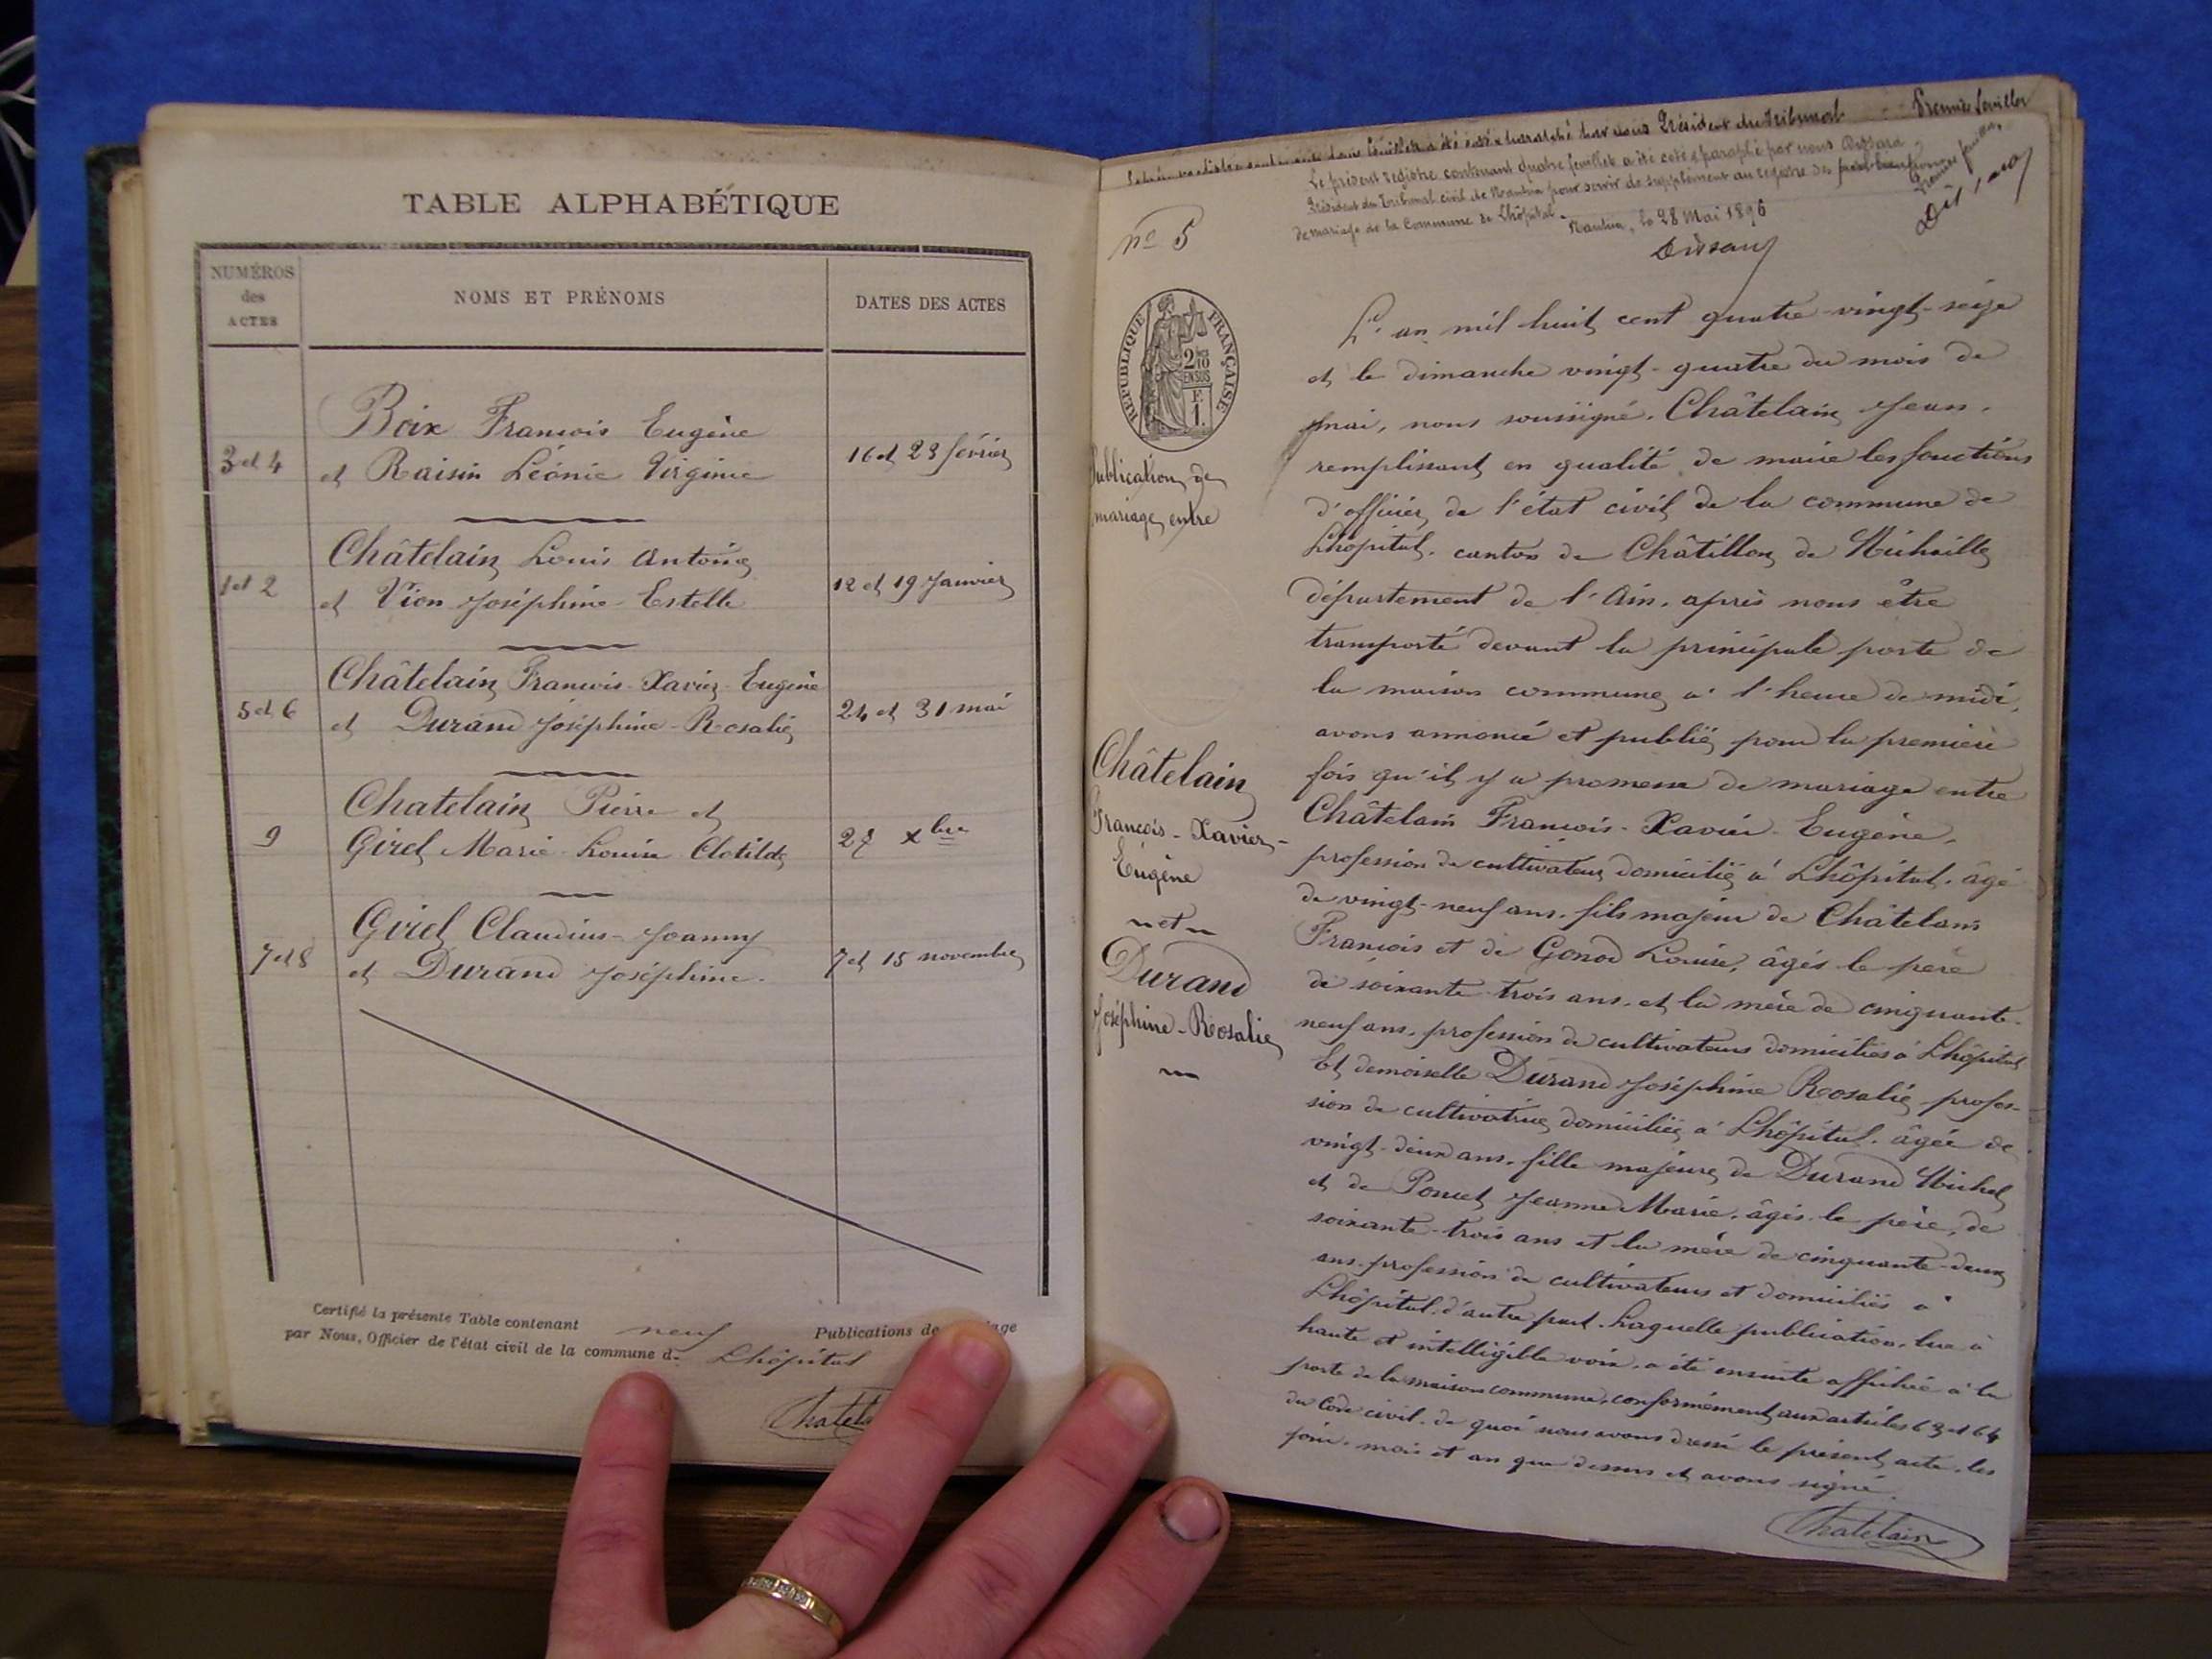 TABLE ALPHABÉTIQUE
NUMÉROS
des
ACTES
NOMS ET PRÉNOMS
DATES DES ACTES
3 et 4
Boix François Eugène
et Raisin Léonie Virginie
16 et 23 février
1 et 2
Châtelain Louis Antoine
et Vion Joséphine Estelle
12 et 19 Janvier
5 et 6
Châtelain François-Xavier-Eugène
et Durand Joséphine-Rosalie
24 et 31 mai
9
Chatelain Pierre et
Girel Marie Louise Clotilde
27 xbre
7 et 8
Girel Claudius-Joanny
et Durand Joséphine.
7 et 15 novembre
Certifié la présente Table contenant neuf Publications de
par Nous, Officier de l'état civil de la commune d. Lhôpital
Premier feuillet
Le présent registre contenant quatre feuillets a été coté & paraphé par nous Dussara
Président du Tribunal civil de Nantua pour servir de supplément au registre des publications
de mariage de la Commune de Lhôpital.
Nantua, le 28 Mai 1896
nº 5
RÉPUBLIQUE FRANÇAISE
2/10
EN SUS
F.
1.
Publication de
mariage entre
Châtelain
François-Xavier-
Eugène
et
Durand
Joséphine-Rosalie
L'an mil huit cent quatre-vingt-seize
et le dimanche vingt-quatre du mois de
mai, nous soussigné, Châtelain Jean,
remplissant en qualité de maire les fonctions
d'officier de l'état civil de la commune de
Lhôpital, canton de Châtillon de Michaille
département de l'Ain, après nous être
transporté devant la principale porte de
la maison commune à l'heure de midi,
avons annoncé et publié pour la première
fois qu'il y a promesse de mariage entre
Châtelain François-Xavier-Eugène,
profession de cultivateur domicilié à Lhôpital, âgé
de vingt-neuf ans, fils majeur de Châtelain
François et de Gonod Louise, âgés le père
de soixante-trois ans, et la mère de cinquante-
neuf ans, profession de cultivateurs domiciliés à Lhôpital
Et demoiselle Durand Joséphine Rosalie profes-
sion de cultivatrice domiciliée à Lhôpital, âgée de
vingt-deux ans, fille majeure de Durand Michel
et de Poncet Jeanne Marie, âgés le père, de
soixante-trois ans et la mère de cinquante-deux
ans, profession de cultivateurs et domiciliés à
Lhôpital, d'autre part. Laquelle publication, lue à
haute et intelligible voix, a été ensuite affichée à la
porte de la maison commune, conformément aux articles 63 et 64
du Code civil, de quoi nous avons dressé le présent acte, les
jour, mois et an que dessus et avons signé.
Chatelain